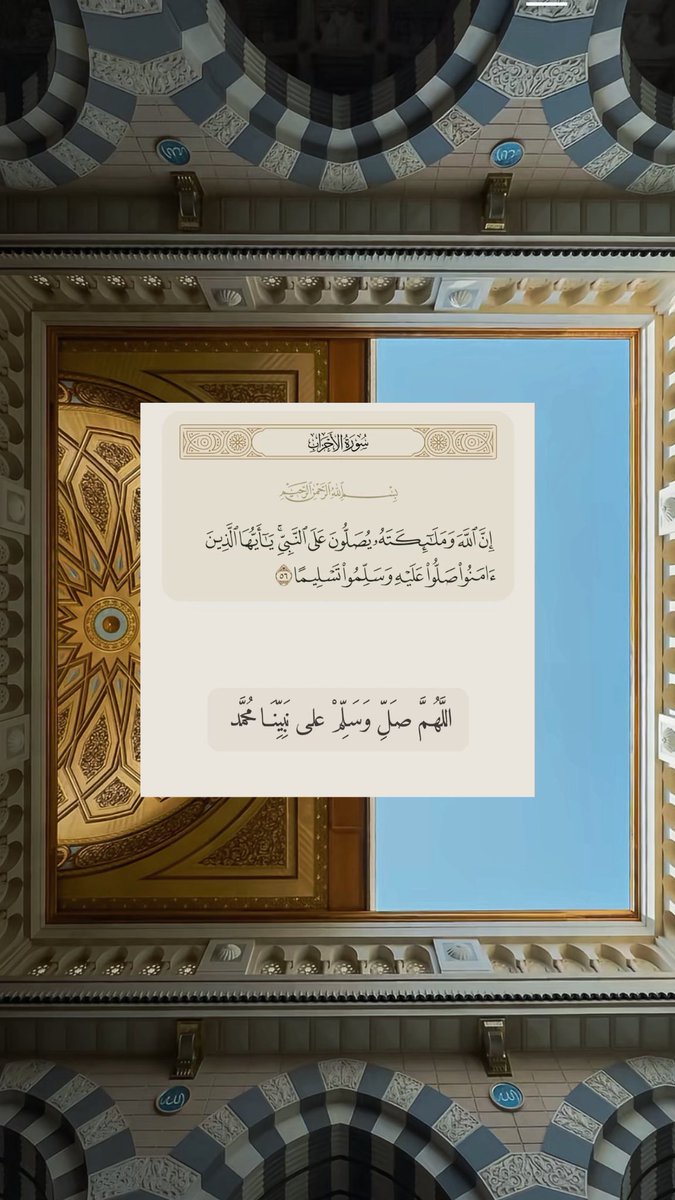 سُورَةُ الأَحْزَابِ
بِسْمِ اللَّهِ الرَّحْمَٰنِ الرَّحِيمِ
إِنَّ ٱللَّهَ وَمَلَٰٓئِكَتَهُۥ يُصَلُّونَ عَلَى ٱلنَّبِيِّۚ يَٰٓأَيُّهَا ٱلَّذِينَ
ءَامَنُوا۟ صَلُّوا۟ عَلَيْهِ وَسَلِّمُوا۟ تَسْلِيمًا ٥٦
اللَّهُمَّ صَلِّ وَسَلِّمْ على نَبِيِّنَا مُحَمَّد